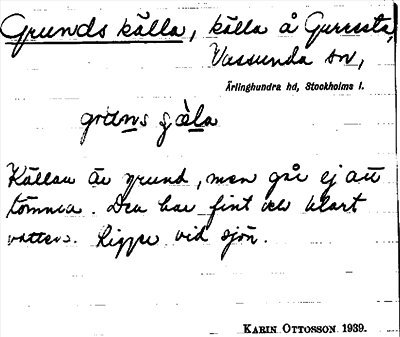 Grunds källa, källa å Gurresta,
Vassunda sn,
Ärlinghundra hd, Stockholms l.
gruns sjä̀la
Källan är grund, men går ej att
tömma. Den har fint och klart
vatten. Ligger vid sjön.
KARIN OTTOSSON 1939.